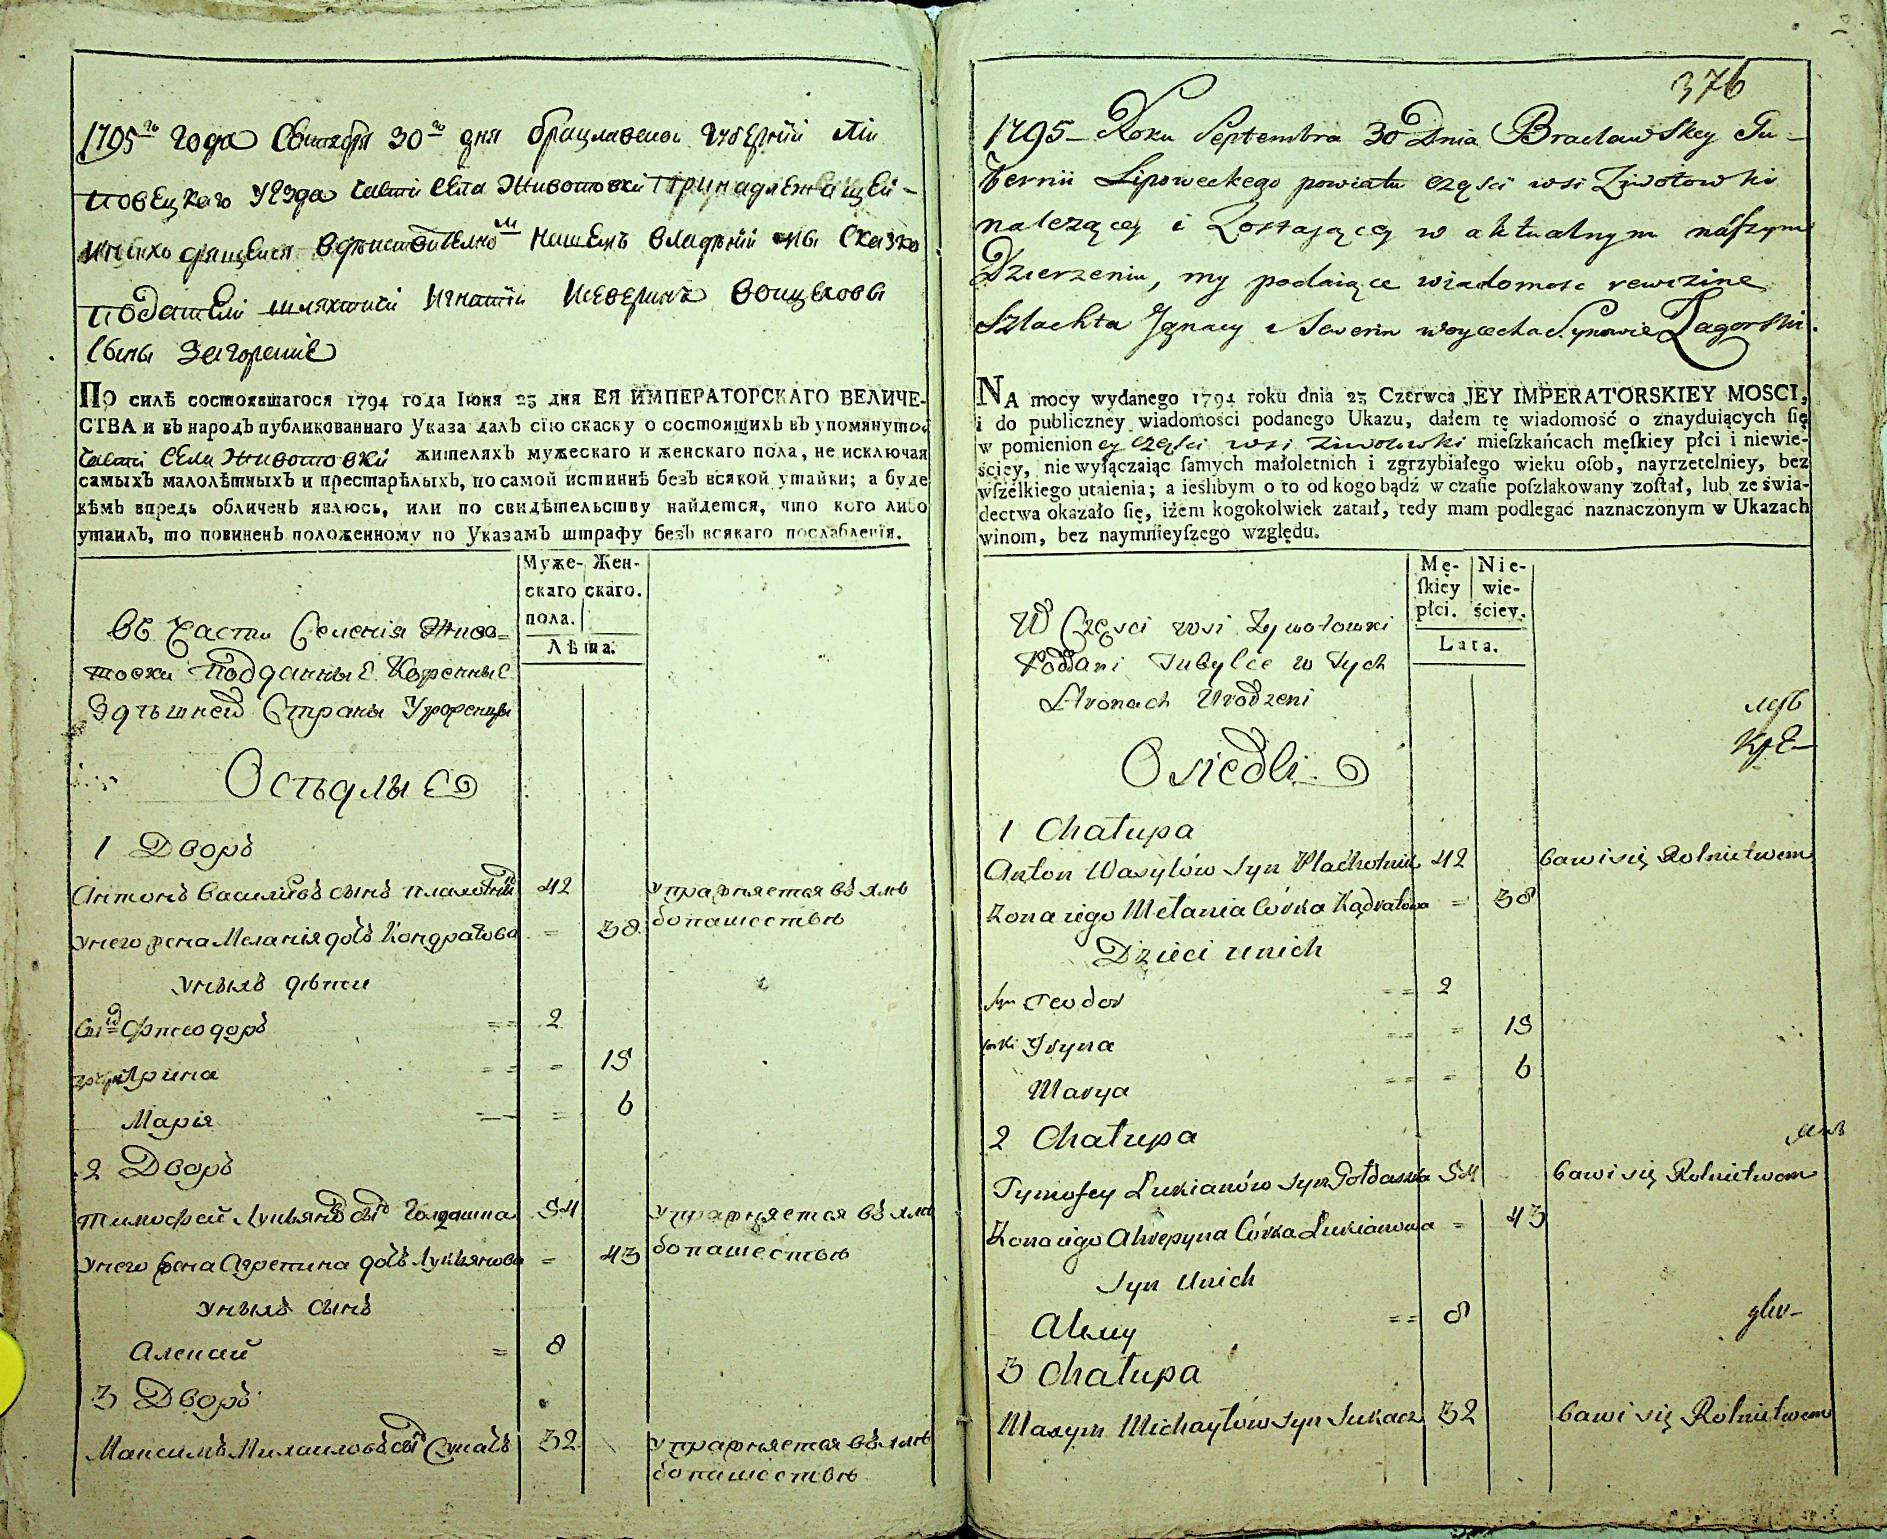 1795го года Сентября 30го дня Брацлавской губернии Ли
повецкаго уезда части села Животовки принадлежащей
и находящейся в действителном нашем владении мы сказко
податели шляхтичи Игнатий и Северинъ Войцеховы
сыны Загорские
По силѣ состоявшагося 1794 года Іюня 23 дня ЕЯ ИМПЕРАТОРСКАГО ВЕЛИЧЕ-
СТВА и въ народъ публикованнаго Указа далъ сію скаску о состоящихъ въ упомянутой
части села Животовки жителяхъ мужескаго и женскаго пола, не исключая
самыхъ малолѣтныхъ и престарѣлыхъ, по самой истиннѣ безъ всякой утайки; а буде
кѣмъ впредь обличенъ явлюсь, или по свидѣтельству найдется, что кого либо
утаилъ, то повиненъ положенному по Указамъ штрафу безъ всякаго послабленія.
Муже- Жен-
скаго скаго.
пола.
Лѣта.
Въ части Селенія Живо-
товки подданные Коренные
Здѣшней Страны Уроженцы
Осѣдлые
1 Дворъ
Антонъ Василіевъ сынъ Плахотній 42 упражняется въ хлѣ
бопашествѣ
у него жена Меланія дочь Кондратова = 38
у нихъ дѣти
Ѳеодоръ == 2
Ярина == = 15
Марія == = 6
2 Дворъ
Тимофей Лукьяновъ сынъ Голдашка 54 упражняется въ хлѣ
бопашествѣ
у него жена Агрепина дочь Лукьянова = 43
у нихъ сынъ
Алексій = 8
3 Дворъ
Максимъ Михаиловъ сынъ Сукачъ 32 упражняется въ хлѣ
бопашествѣ
376
1795 Roku Septembra 30 Dnia Bracławskey Gu-
bernii Lipoweckego powiatu części wsi Ziwotowki
należącey i Zostającey w aktualnym nászym
Dzierzeniu, my podaiące wiadomosc rewizine
Szlachta Jgnacy i Sewerin woyciecha Synowie Zagorski.
NA mocy wydanego 1794 roku dnia 23 Czerwca JEY IMPERATORSKIEY MOSCI,
i do publiczney wiadomości podanego Ukazu, dałem tę wiadomość o znayduiących ſię
w pomienioney części wsi Ziwotowki mieſzkańcach męſkiey płci i niewie-
ściey, nie wyłączaiąc ſamych małoletnich i zgrzybiałego wieku oſob, nayrzetelniey, bez
wſzelkiego utaienia; a ieślibym o to od kogo bądź w czaſie poſzlakowany zoſtał, lub ze świa-
dectwa okazało ſię, iżem kogokolwiek zataił, tedy mam podlegać naznaczonym w Ukazach
winom, bez naymnieyſzego względu.
Mę- Nie-
ſkiey wie-
płci. ściey.
Lata.
W Częsci wsi Zywotowki
Poddani Tubylce w Tych
Stronach Urodzeni
Osiedli
1 Chałupa
Anton Wasylów syn Płachotnik 42 bawi się Rolnictwem
Zona iego Mełania Córka Kądratowa = 38
Dzieci u nich
syn Teodor == 2
corki Iryna == = 15
Marya == = 6
2 Chałupa
Tymofey Łukianów syn Gołdaszka 54 bawi się Rolnictwem
Zona iego Ahrepyna Córka Łukianowa = 43
Syn u nich
== 8
3 Chałupa
Maxym Michayłów syn Sukacz 32 bawi się Rolnictwem